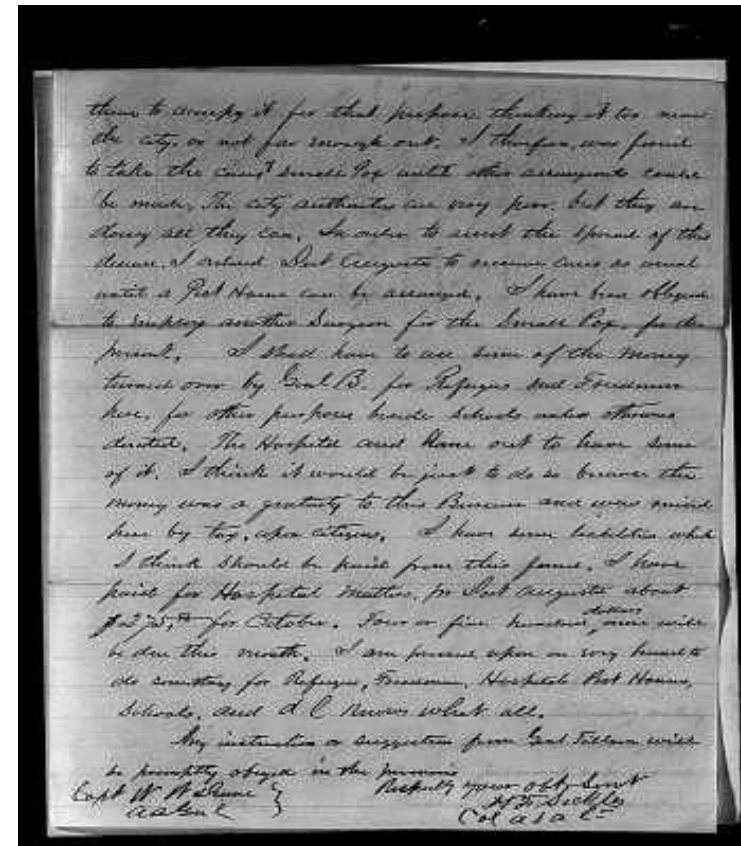 them to occupy it for that purpose thinking it too near
the city, or not far enough out. I therefore, was forced
to take the cases small Pox until other arrangements could
be made. The city authorities are very poor, but they are
doing all they can. In order to arrest the spread of this
disease I ordered Doct Augusta to receive cases as usual
until a Pest House can be arranged. I have been obliged
to employ another Surgeon for the Small Pox, for the
present. I shall have to use some of the money
turned over by Genl B. for Refugees and Freedmen
here, for other purposes beside schools unless otherwise
directed. The Hospital and Home out to have some
of it. I think it would be just to do so because the
money was a gratuity to this Bureau and was raised
here by tax, upon citizens. I have some liabilities which
I think should be paid from this fund. I have
paid for Hospital matters, for Doct Augusta about
for October. Four or five hundred dollars more will
be due this month. I am pressed upon on every hand to
do something for Refugees, Freedmen, Hospitals Pest Houses,
Schools, and d C knows what all.
Any instruction or suggestion from Genl Tillson will
be promptly obeyed in the premises
Respectfully your obt Servt
Capt W W Deane
A A Genl
H F Sickles
Col